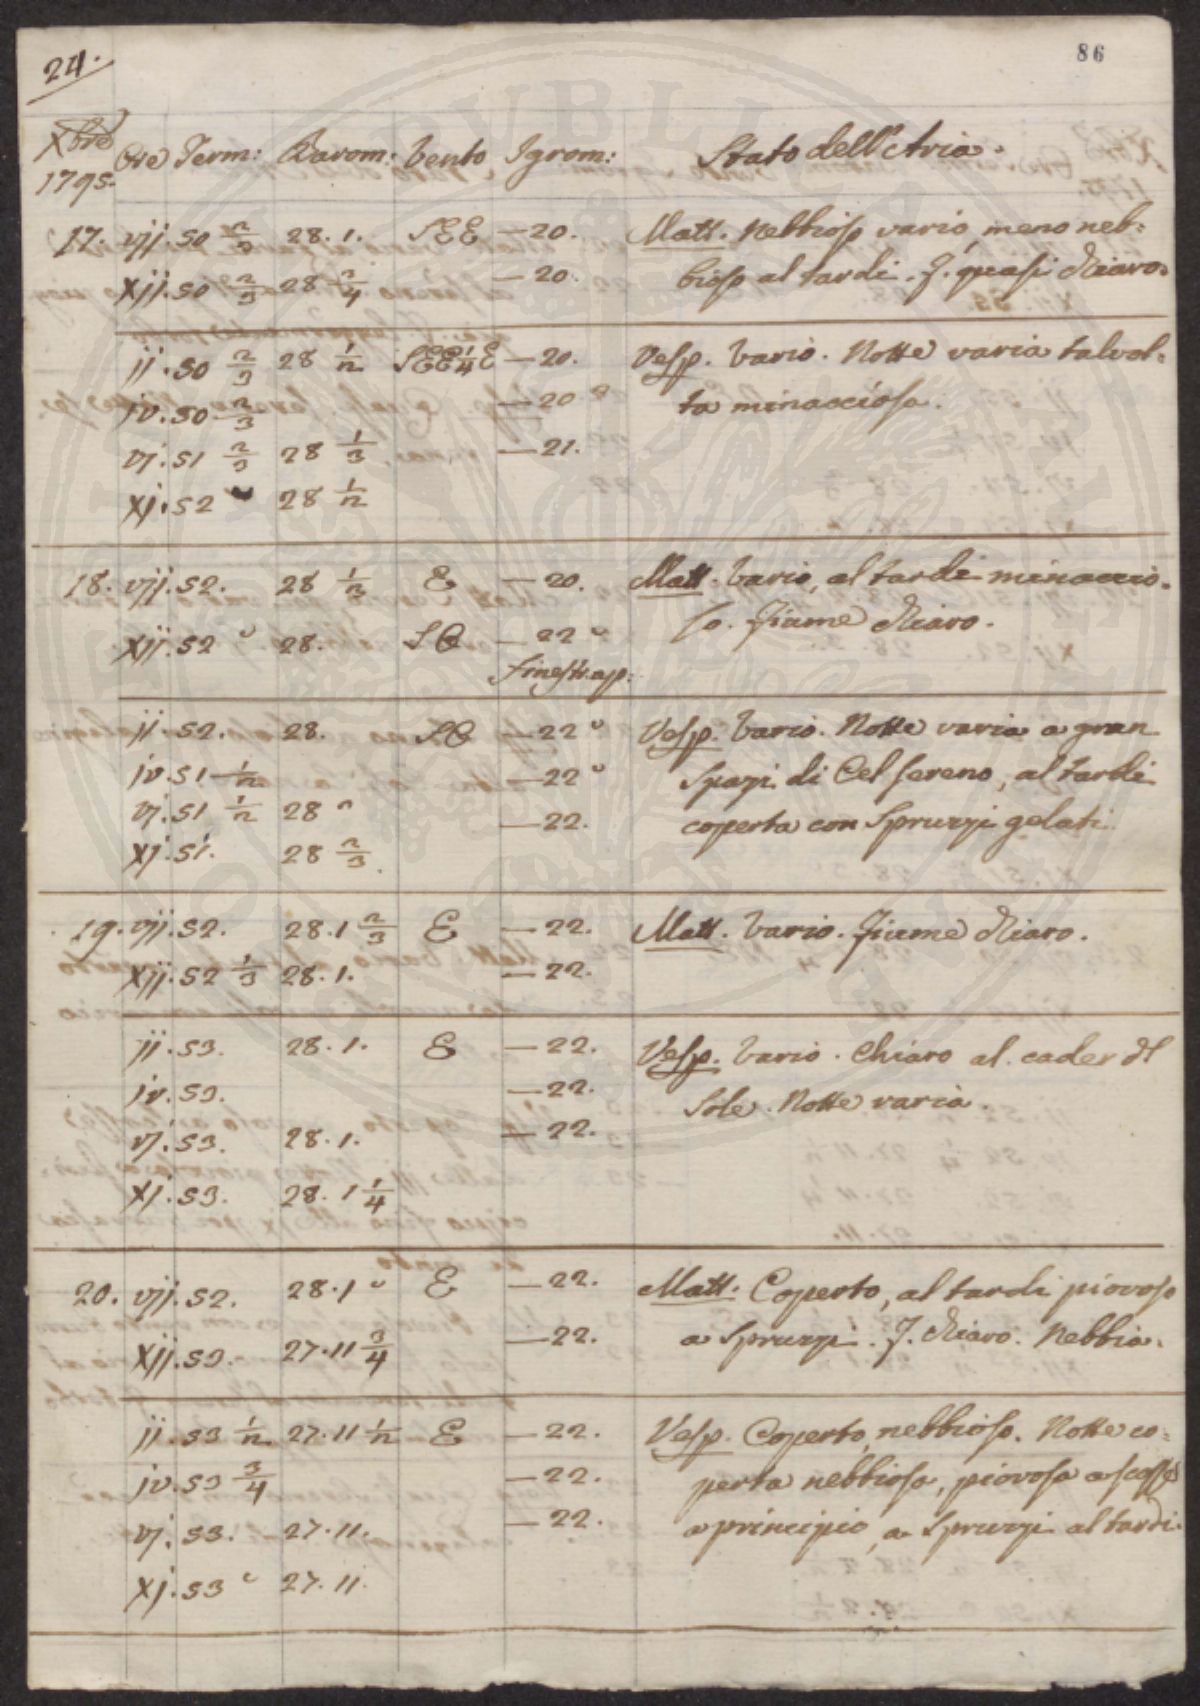 24.
86
Xbre
1795.
Ore Term: Barom: Vento Igrom: Stato dell'Aria.
17. vij. 50 2/3 28. 1. SEE —20. Matt. Nebbioso vario, meno neb=
xij. 50 2/3 28 3/4 —20. bioso al tardi. F. quasi chiaro.
ij. 50 2/3 28 1/2 SEE 1/4 E —20. Vesp. Vario. Notte varia talvol=
iv. 50 2/3 —20 ta minacciosa.
vj. 51 2/3 28 1/3 —21.
xj. 52 28 1/2
18. vij. 52. 28 1/3 E —20. Matt. Vario, al tardi minaccio=
xij. 52 28. SO —22 so. Fiume chiaro.
finestr. ap.
ij. 52. 28. SO —22 Vesp. Vario. Notte varia a gran
iv. 51 1/2 —22 spazi di Cel sereno, al tardi
vj. 51 1/2 28 —22. coperta con Spruzzi gelati.
xj. 51. 28 2/3.
19. vij. 52. 28. 1 2/3 E —22. Matt. Vario. Fiume chiaro.
xij. 52 1/3 28. 1. —22.
ij. 53. 28. 1. E —22. Vesp. Vario. Chiaro al cader dl
iv. 53. —22. Sole. Notte varia.
vj. 53. 28. 1. —22.
xj. 53. 28. 1 1/4
20. vij. 52. 28. 1 E —22. Matt. Coperto, al tardi piovoso
xij. 53. 27. 11 3/4 —22. a Spruzzi. F. chiaro. Nebbia.
ij. 53 1/2 27. 11 1/2 E —22. Vesp. Coperto, nebbioso. Notte co=
iv. 53 3/4 —22. perta nebbiosa, piovosa a scosse
vj. 53. 27. 11. —22. a principio, a Spruzzi al tardi.
xj. 53 27. 11.